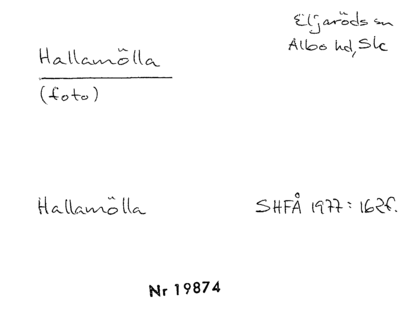 Eljaröds sn
Albo hd, Sk
Hallamölla
(foto)
Hallamölla SHFÅ 1977: 162f.
Nr 19874